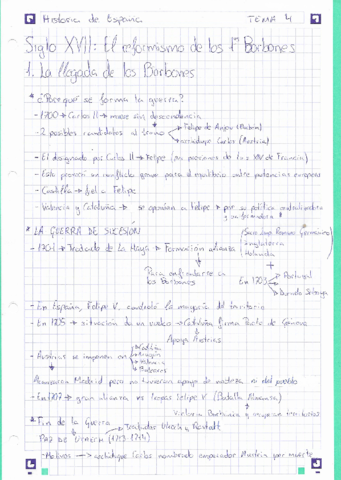 Historia de España TEMA 4
Siglo XVII: El reformismo de los 1º Borbones
1. La llegada de los Borbones
* ¿Por qué se forma la guerra?
- 1700 → Carlos II → muere sin descendencia
- 2 posibles candidatos al trono → Felipe de Anjou (Borbón)
→ archiduque Carlos (Austria)
- El designado por Carlos II → Felipe (por presiones de Luis XIV de Francia)
- Esto provocó un conflicto para el equilibrio entre potencias europeas
- Castilla → fiel a Felipe
- Valencia y Cataluña → se oponían a Felipe → por su política centralizadora
* LA GUERRA DE SUCESIÓN
- 1701 → Tratado de La Haya → Formación alianza
Inglaterra
Holanda
+
Para enfrentarse a
los Borbones
En 1703 → Portugal
→ Saboya
- En España, Felipe V. controló la mayoría del territorio
- En 1705 → situación da un vuelco → Cataluña firma Pacto de Génova
Apoyo Austrias
- Austrias se imponen en
Aragón
Valencia
Baleares
Alcanzaron Madrid pero no tuvieron apoyo de nobleza ni del pueblo
- En 1707 → gran alcance de tropas Felipe V (Batalla Almansa)
Victoria Borbónica y recuperan territorios
* Fin de la Guerra → Tratados Utrecht y Rastatt
PAZ DE UTRECH (1713-1714)
- Motivos → archiduque Carlos nombrado emperador Austria por muerte